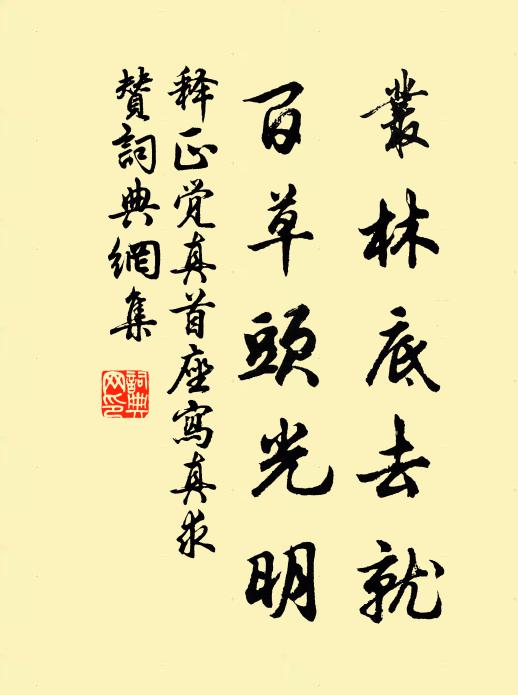 叢林底去就
百草頭光明
释正覺真首座寫真求
贊詞典網集
詞典网印